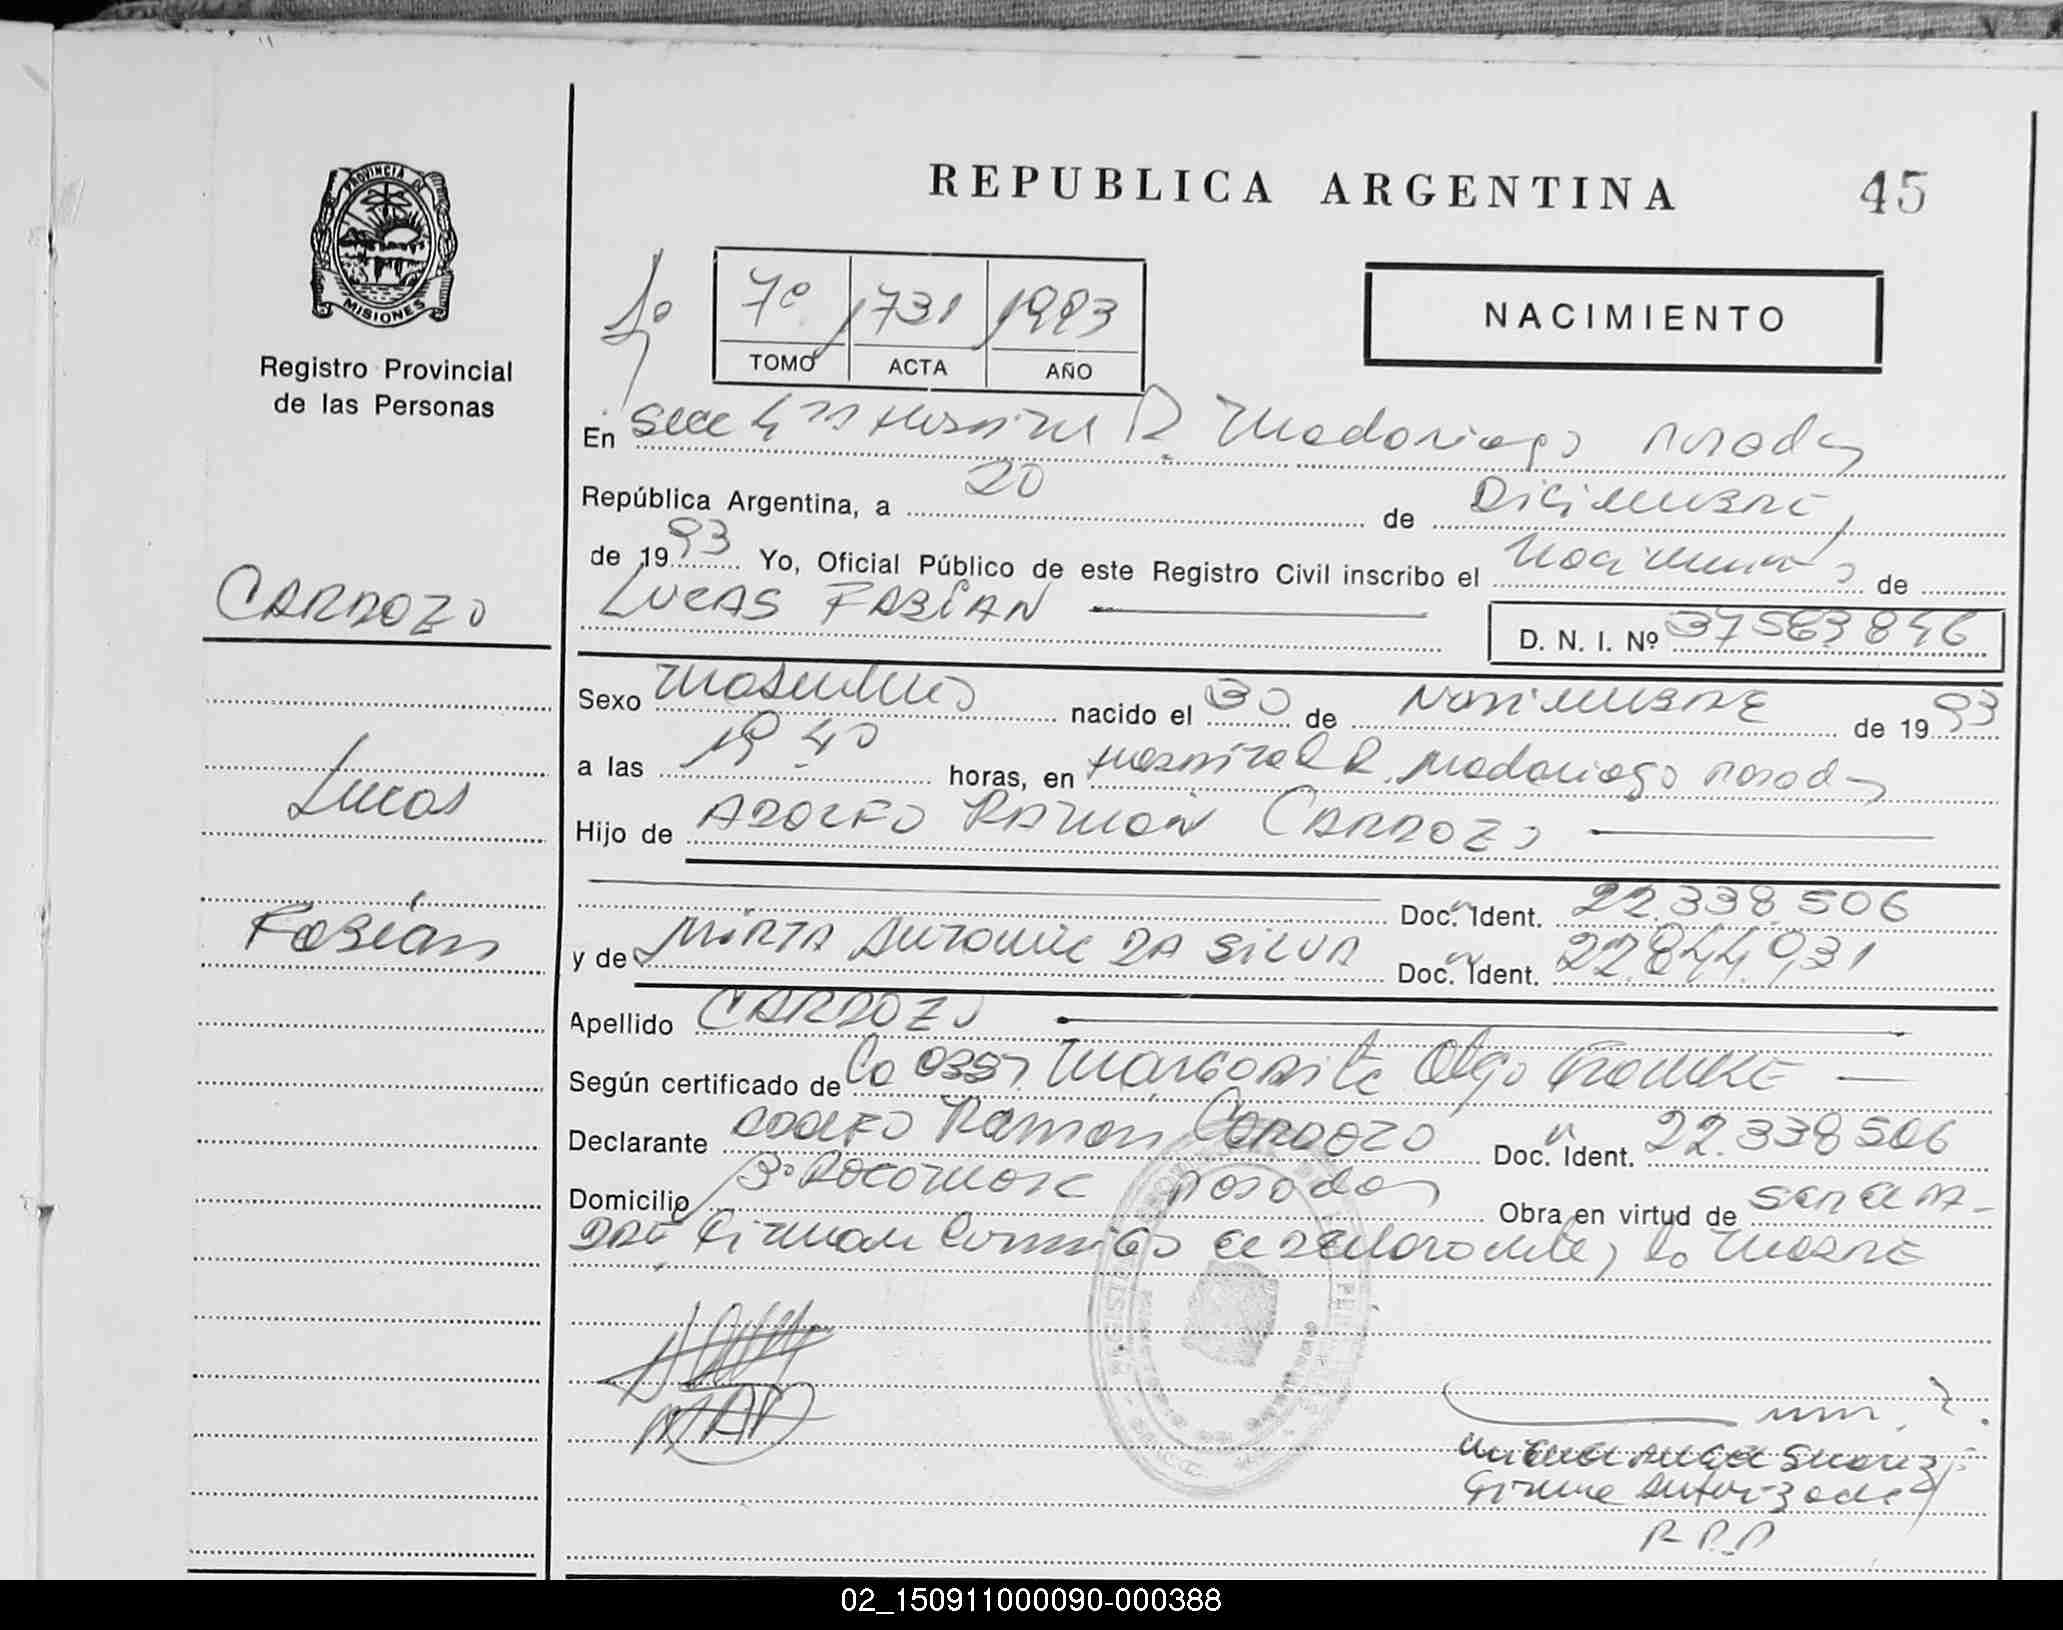 REPUBLICA ARGENTINA
45
PROVINCIA DE
MISIONES
Registro Provincial
de las Personas
7º 1731 1993
TOMO ACTA AÑO
NACIMIENTO
En Secc 4ta Hospital R. Madariaga Posadas
República Argentina, a 20 de Diciembre,
de 1993 Yo, Oficial Público de este Registro Civil inscribo el Nacimiento de
LUCAS FABIAN
D. N. I. Nº 37583846
CARDOZO
Lucas
Fabián
Sexo Masculino nacido el 30 de Noviembre de 1993
a las 19 40 horas, en Hospital R. Madariaga Posadas
Hijo de ADOLFO RAMON CARDOZO
Doc. Ident. 22.338.506
y de MIRTA Antonia DA SILVA Doc. Ident. 22.844.931
Apellido CARDOZO
Según certificado de la Obst. Margarita Olga
Declarante Adolfo Ramón Cardozo Doc. Ident. 22.338506
Domicilio Bº Rocamora Posadas Obra en virtud de ser el pa-
dre Firman Conmigo el declarante, la Madre
Miguel Angel Suarez
Firma Autorizada
R.P.P
02_150911000090-000388